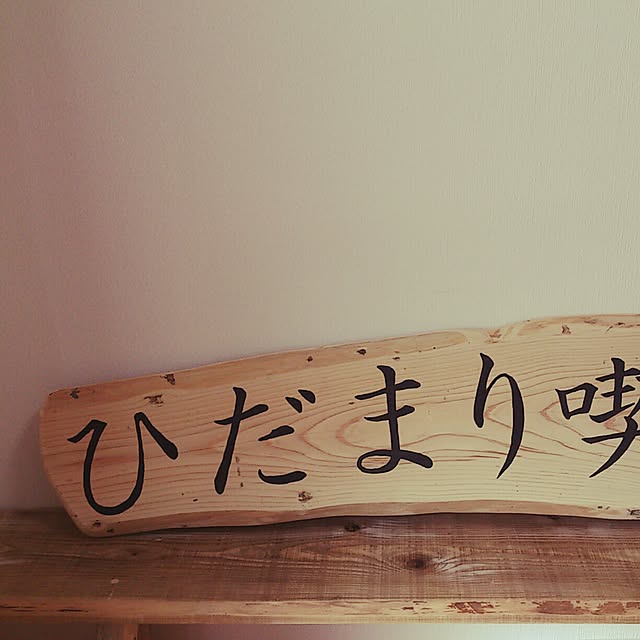 ひだまり喫